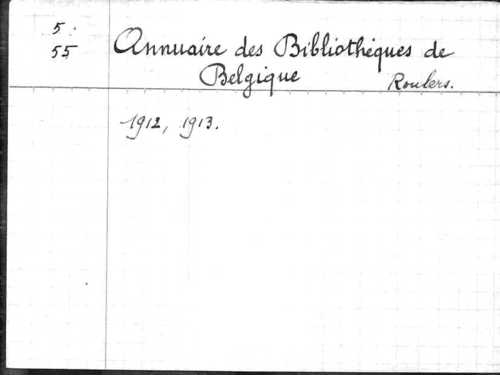 5:
55
Annuaire des Bibliothèques de
Belgique
Roulers.
1912, 1913.